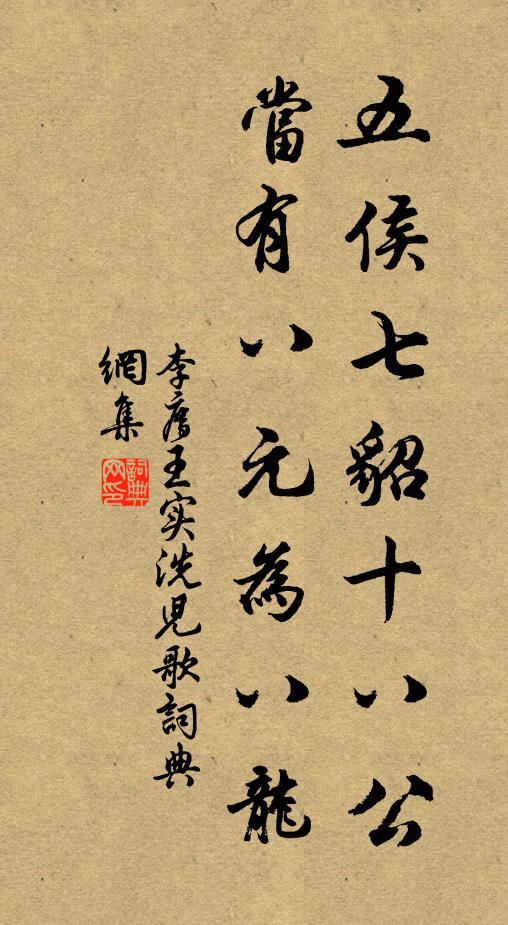 五侯七貂十八公
當有八元為八龍
李廌王实洗兒歌詞典
網集
詞典網印